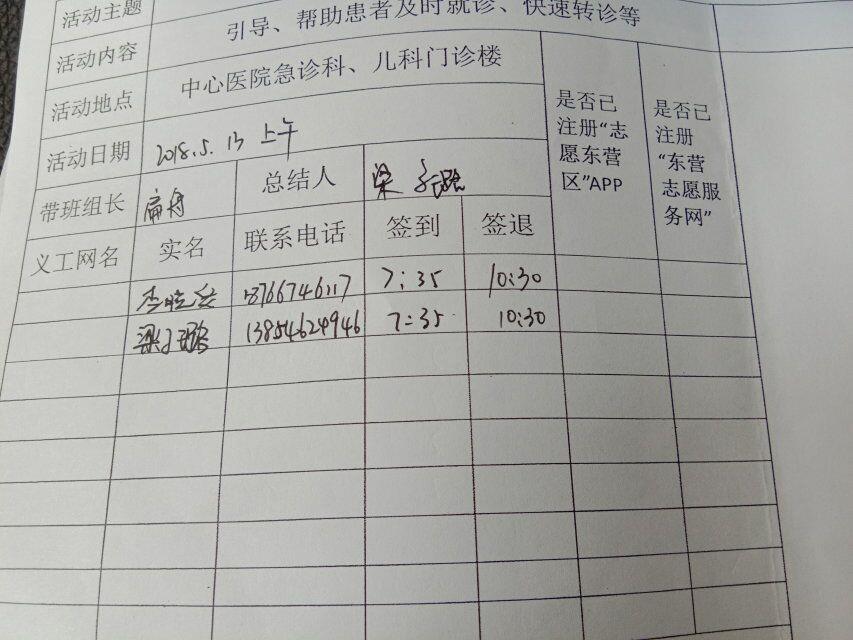 活动主题
活动内容 引导、帮助患者及时就诊、快速转诊等
活动地点 中心医院急诊科、儿科门诊楼
活动日期 2018.5.13 上午
带班组长 扁舟 总结人 梁子璐
义工网名 实名 联系电话 签到 签退 是否已注册“志愿东营区”APP 是否已注册“东营志愿服务网”
18766746117 7:35 10:30
梁子璐 13854624946 7:35 10:30